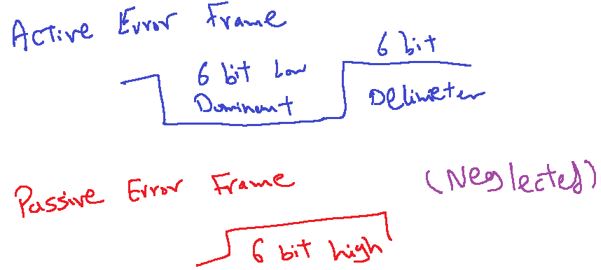 Active Error Frame
6 bit Low
Dominant
6 bit
Delimeter
Passive Error Frame
(Neglected)
6 bit high